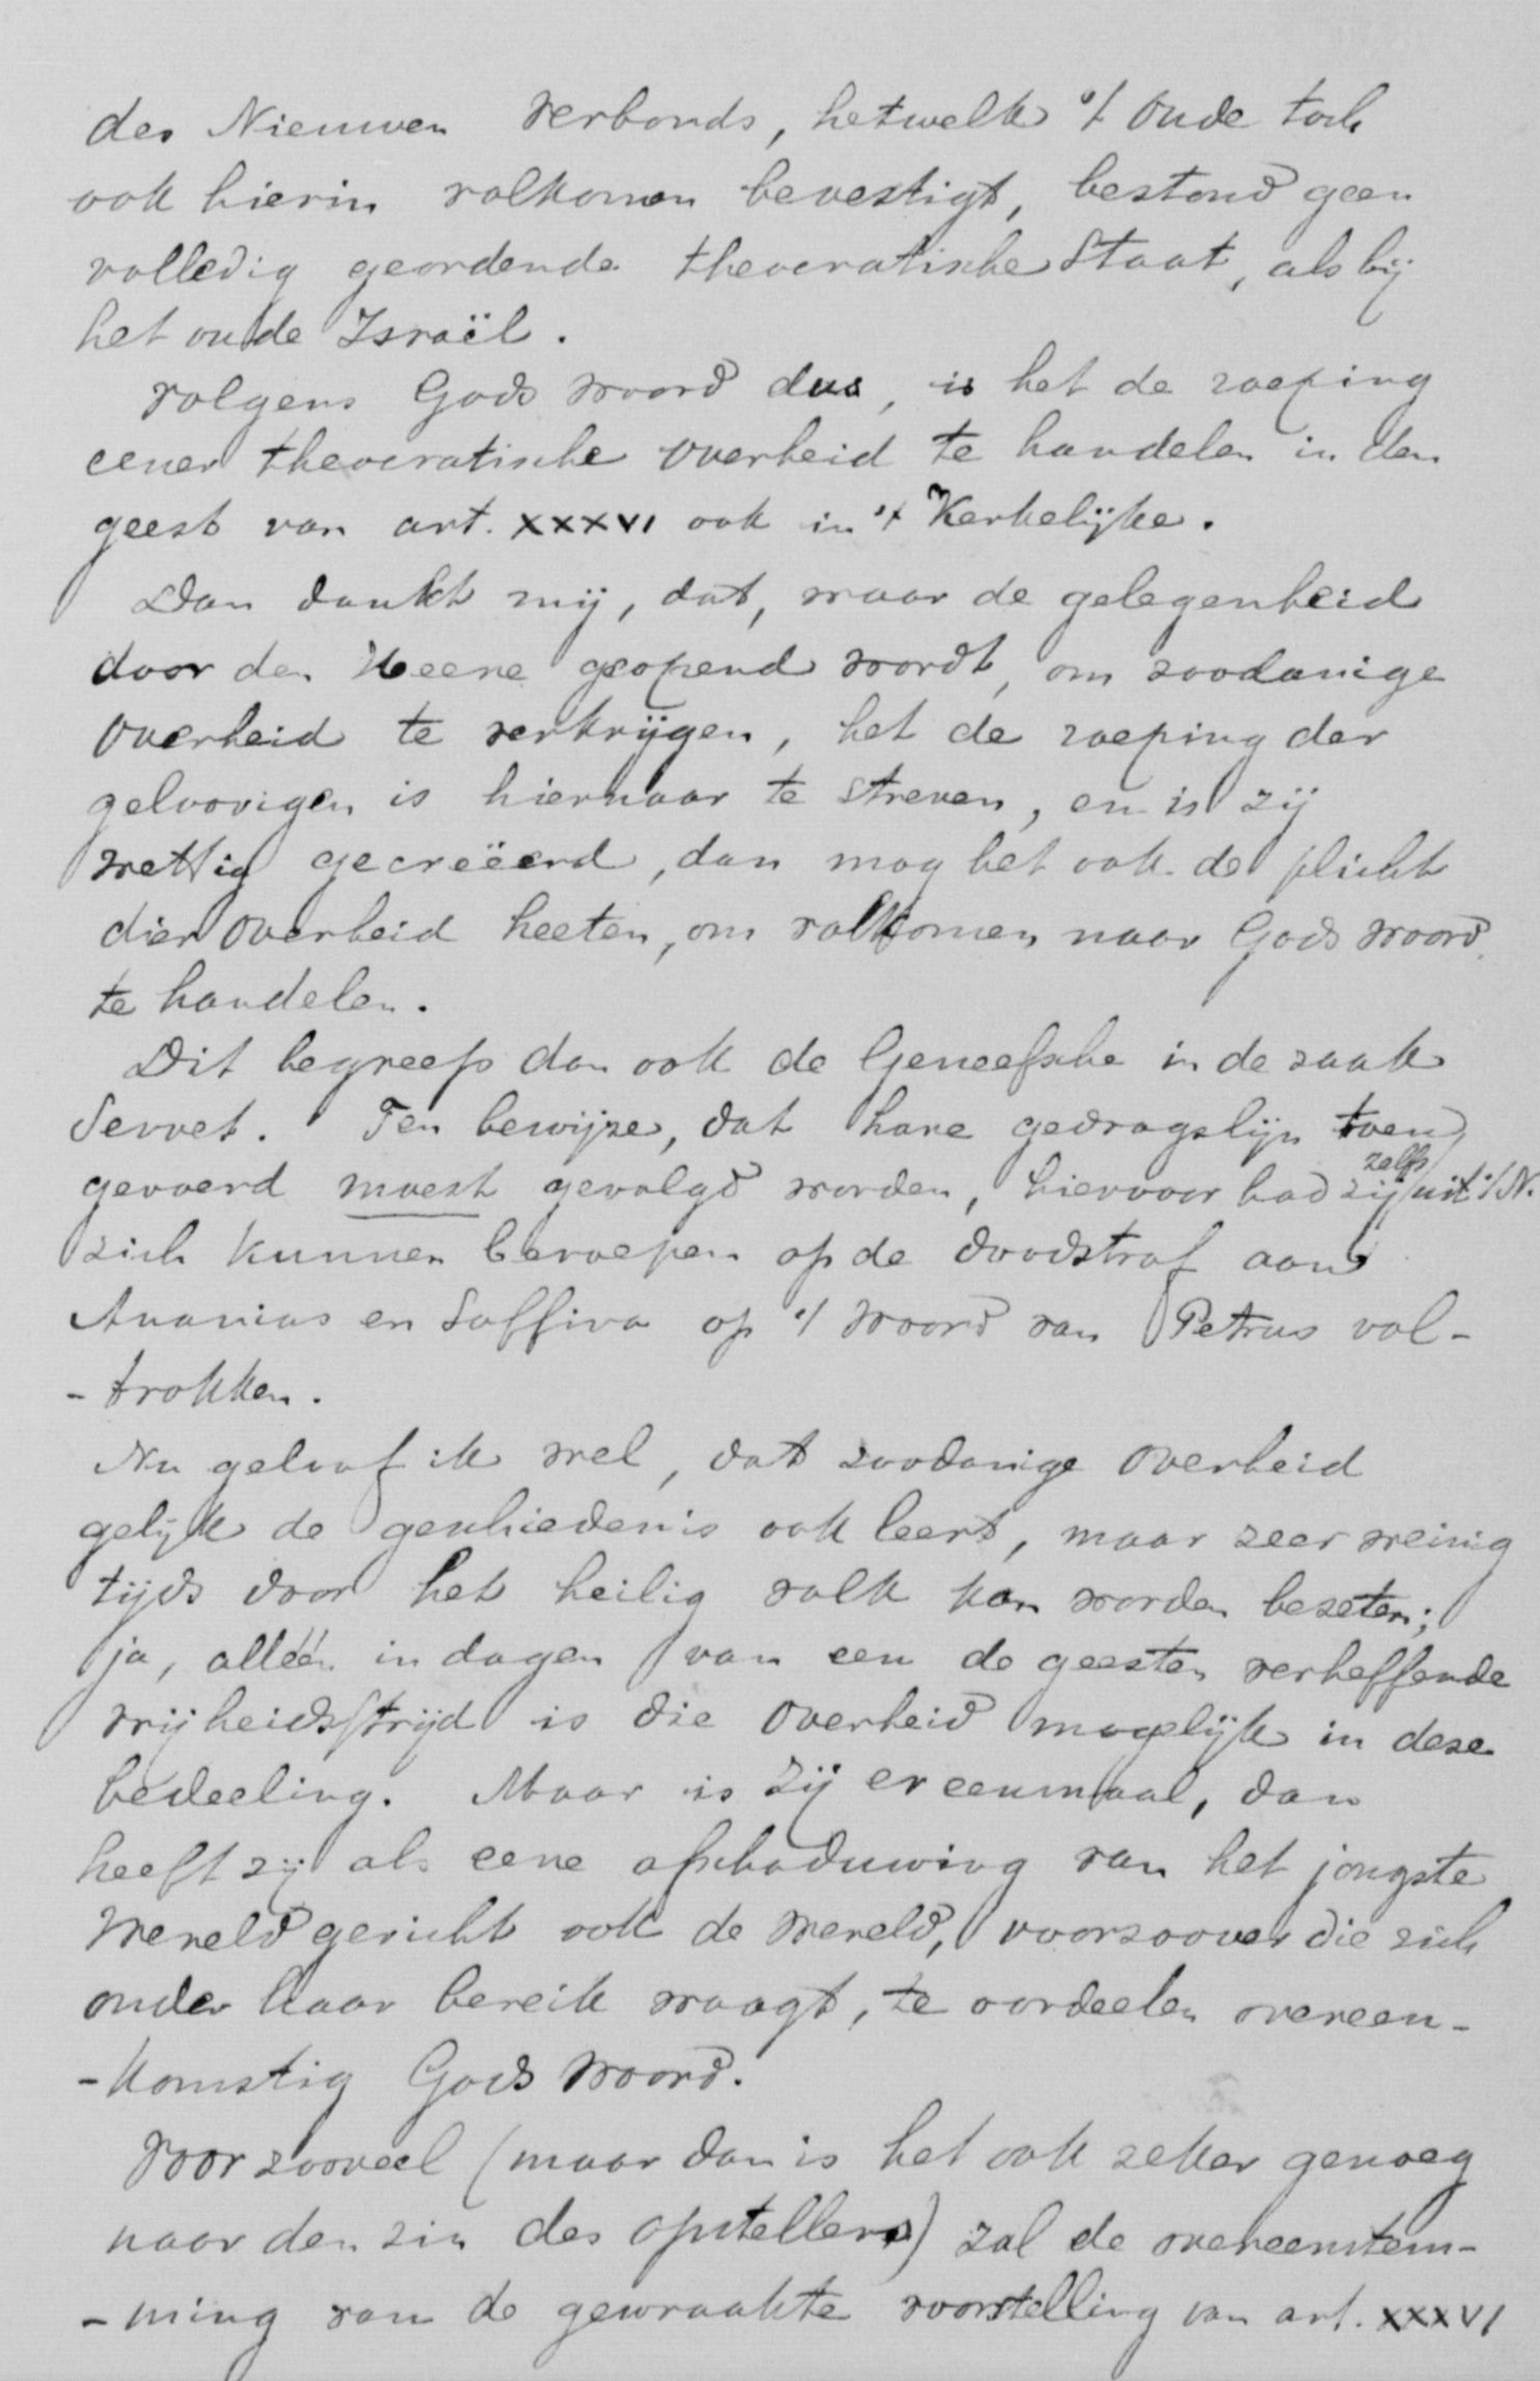 des Nieuwen Verbonds, hetwelk 't Oude toch
ook hierin volkomen bevestigt, bestond geen
volledig geordende theocratische Staat, als bij
het oude Israël.
Volgens Gods Woord dus, is het de roeping
eener theocratische Overheid te handelen in den
geest van art. XXXVI ook in 't Kerkelijke.
Dan dunkt mij, dat, waar de gelegenheid
door den Heere geopend wordt, om zoodanige
Overheid te verkrijgen, het de roeping der
geloovigen is hiernaar te streven, en is zij
wettig gecreëerd, dan mag het ook de plicht
dier Overheid heeten, om volkomen naar Gods Woord
te handelen.
Dit begreep dan ook de Geneefsche in de zaak
Servet. Ten bewijze, dat hare gedragslijn toen
gevoerd moest gevolgd worden, hiervoor had zij zelfs uit 't N.
zich kunnen beroepen op de doodstraf aan
Ananias en Saffira op 't Woord van Petrus vol-
-trokken.
Nu geloof ik wel, dat zoodanige Overheid
gelijk de geschiedenis ook leert, maar zeer weinig
tijds door het heilig volk kan worden bezeten;
ja, alléén in dagen van een de geesten verheffende
vrijheidsstrijd is die Overheid mogelijk in deze
bedeeling. Maar is zij er eenmaal, dan
heeft zij als eene afschaduwing van het jongste
Wereldgericht ook de Wereld, voorzoover die zich
onder haar bereik waagt, te oordeelen overeen-
-komstig Gods Woord.
Voor zooveel (maar dan is het ook zeker genoeg
naar den zin des opstellers) zal de overeenstem-
-ming van de gewraakte voorstelling van art. XXXVI